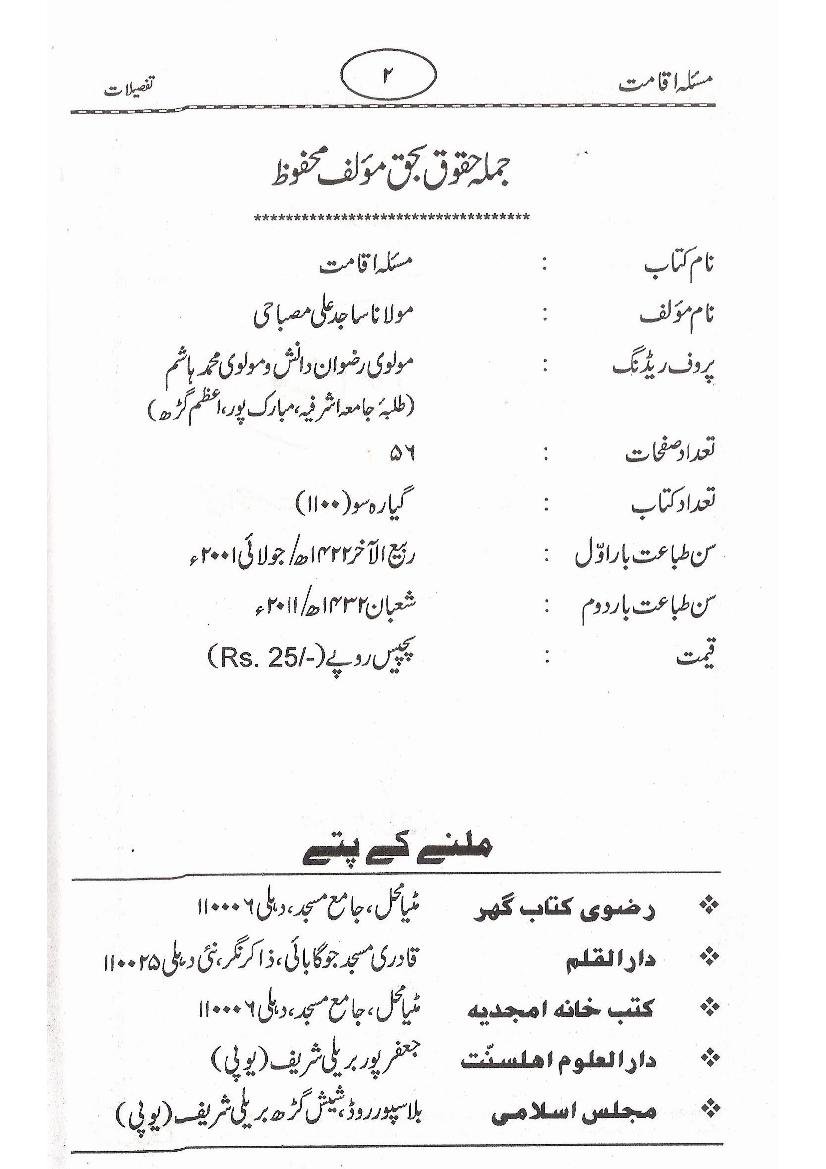 مسئلہ اقامت ۲ تفصیلات
جملہ حقوق بحق مؤلف محفوظ
**********************************
نام کتاب : مسئلہ اقامت
نام مؤلف : مولانا ساجد علی مصباحی
پروف ریڈنگ : مولوی رضوان دانش و مولوی محمد ہاشم
(طلبۂ جامعہ اشرفیہ، مبارک پور، اعظم گڑھ)
تعداد صفحات : ۵۶
تعداد کتاب : گیارہ سو (۱۱۰۰)
سن طباعت بار اوّل : ربیع الآخر ۱۴۲۲ھ/ جولائی ۲۰۰۱ء
سن طباعت بار دوم : شعبان ۱۴۳۲ھ/ ۲۰۱۱ء
قیمت : پچیس روپے (Rs. 25/-)
ملنے کے پتے
❖ رضوی کتاب گھر مٹیا محل، جامع مسجد، دہلی ۱۱۰۰۰۶
❖ دارالقلم قادری مسجد جوگابائی، ذاکر نگر، نئی دہلی ۱۱۰۰۲۵
❖ کتب خانہ امجدیہ مٹیا محل، جامع مسجد، دہلی ۱۱۰۰۰۶
❖ دارالعلوم اہلسنّت جعفر پور بریلی شریف (یوپی)
❖ مجلس اسلامی بلاسپور روڈ، شیش گڑھ بریلی شریف (یوپی)